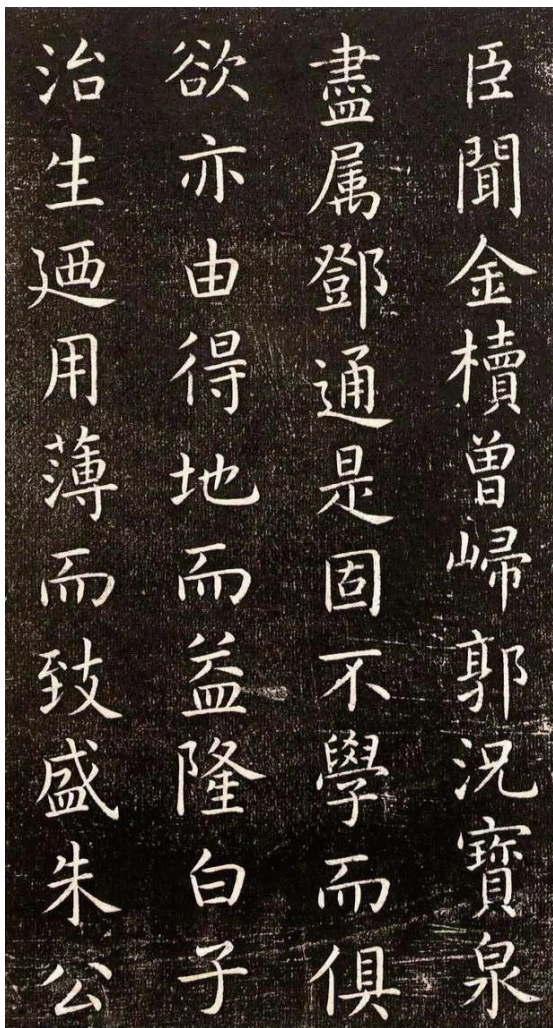 臣聞金櫝曽㱕郭况寶泉
盡属鄧通是固不學而俱
欲亦由得地而益隆白子
治生廼用薄而致盛朱公